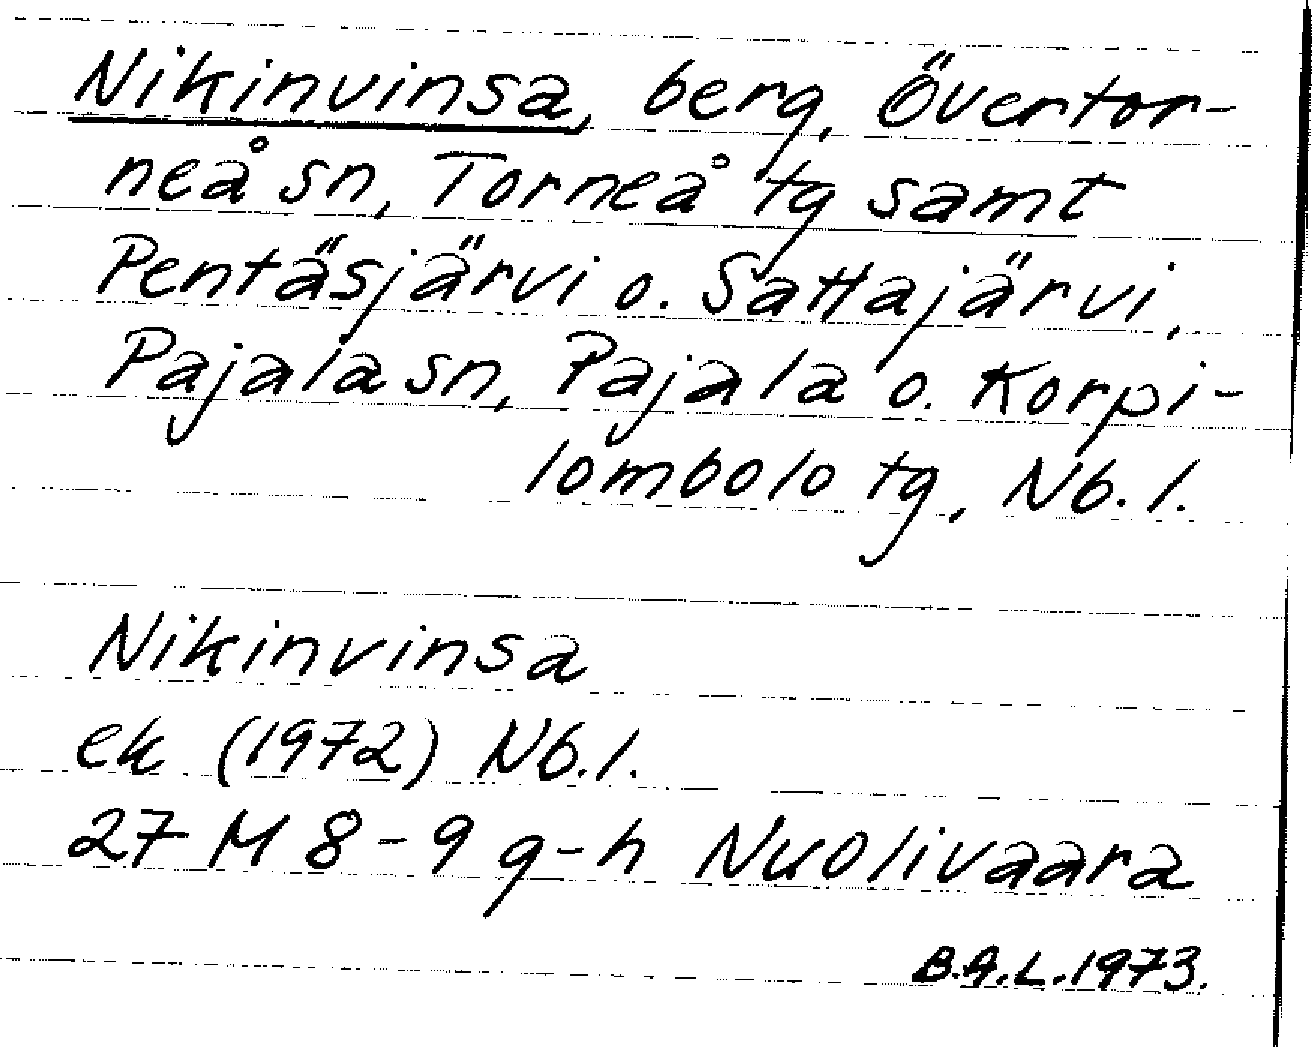 Nikinvinsa, berg, Övertor-
neå sn, Torneå tg samt
Pentäsjärvi o. Sattajärvi,
Pajala sn, Pajala o. Korpi-
lombolo tg, Nb. l.
Nikinvinsa
ek (1972) Nb. l.
27 M 8-9 g-h Nuolivaara
B.A.L. 1973.